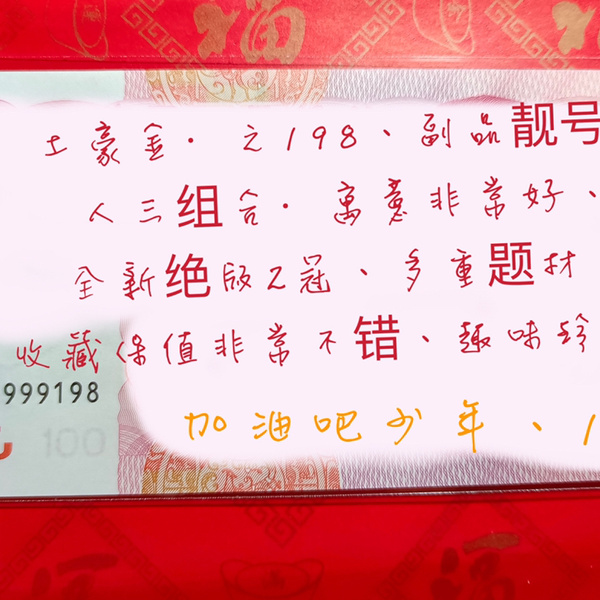 土豪金·之198、副品靓号
人三组合·寓意非常好、
全新绝版Z冠、多重题材
收藏保值非常不错、趣味珍
999198
100
加油吧少年、1
福